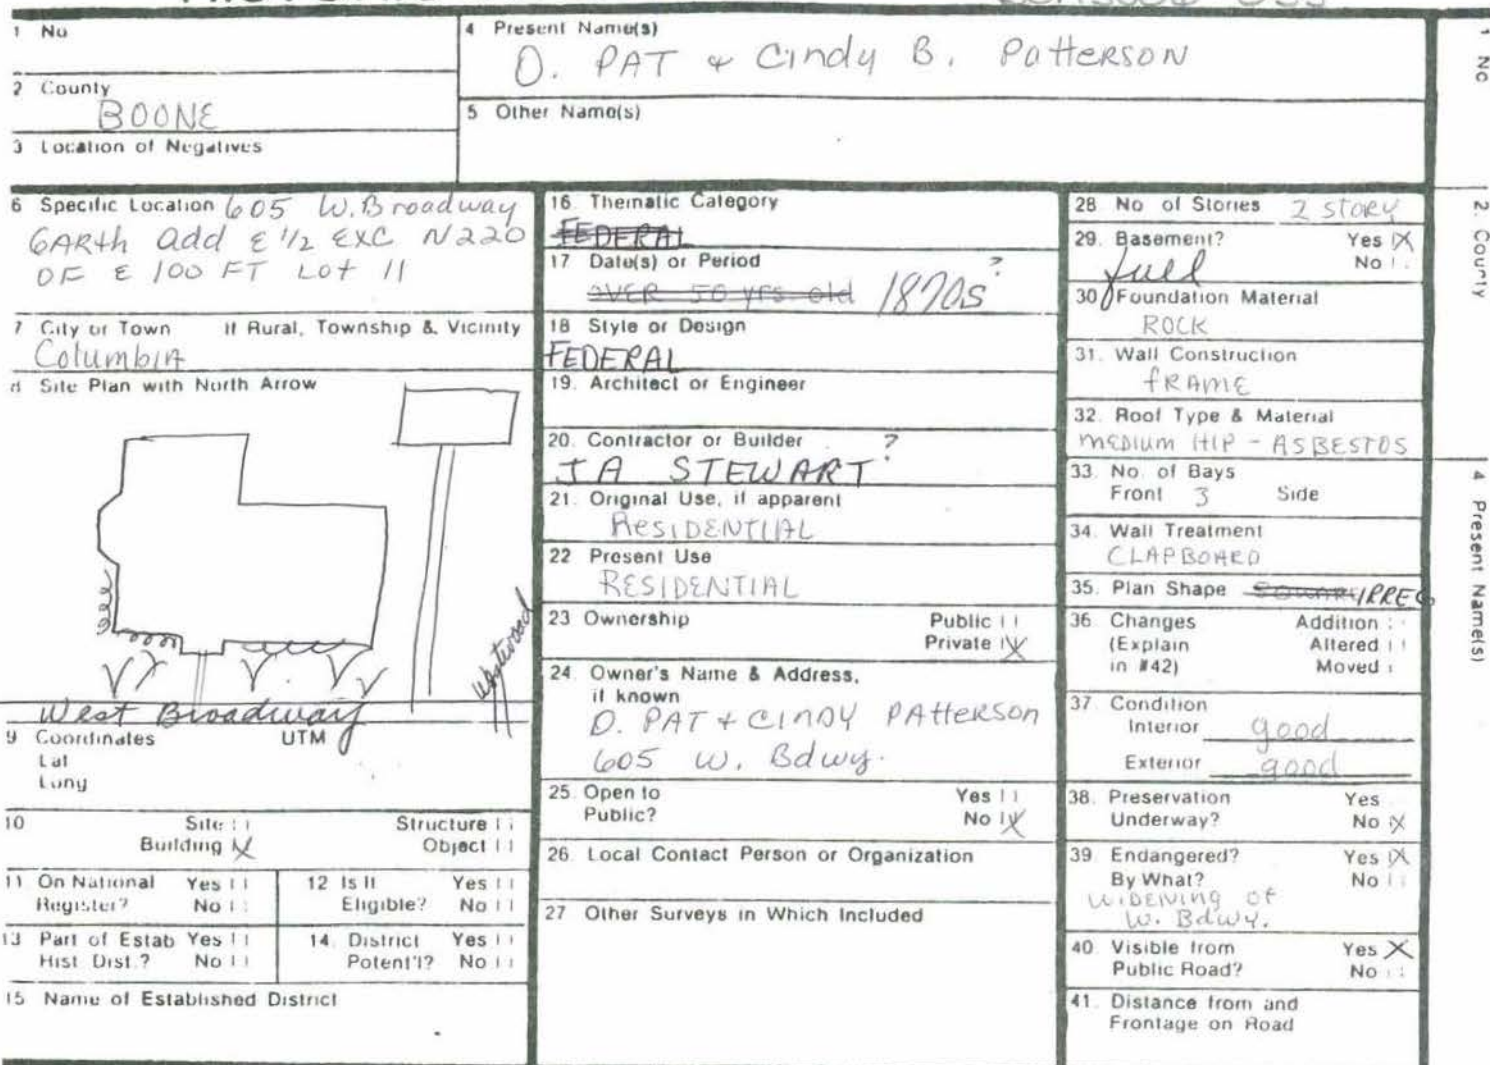 1 No
4 Present Name(s)
D. PAT & Cindy B. Patterson
2 County
BOONE
5 Other Name(s)
3 Location of Negatives
6 Specific Location 605 W. Broadway
GARth add E 1/2 EXC N220
OF E 100 FT Lot 11
7 City or Town If Rural, Township & Vicinity
Columbia
8 Site Plan with North Arrow
Westwood
West Broadway
9 Coordinates UTM
Lat
Long
10 Site Structure
Building X Object
11 On National Register? Yes No
12 Is It Eligible? Yes No
13 Part of Estab Hist. Dist.? Yes No
14. District Potent'l? Yes No
15 Name of Established District
16. Thematic Category
FEDERAL
17 Date(s) or Period
OVER 50 yrs. old 1870s?
18 Style or Design
FEDERAL
19. Architect or Engineer
20. Contractor or Builder
JA STEWART?
21. Original Use, if apparent
RESIDENTIAL
22 Present Use
RESIDENTIAL
23 Ownership Public
Private X
24 Owner's Name & Address,
if known
D. PAT & CINDY PAttERSON
605 W. Bdwy.
25. Open to Yes
Public? No X
26. Local Contact Person or Organization
27 Other Surveys in Which Included
28 No of Stories 2 STORY
29. Basement? Yes X
full No
30 Foundation Material
ROCK
31. Wall Construction
fRAME
32. Roof Type & Material
MEDIUM HIP - ASBESTOS
33. No. of Bays
Front 3 Side
34. Wall Treatment
CLAPBOARD
35. Plan Shape SQUARE IRREG
36. Changes Addition
(Explain Altered
in #42) Moved
37. Condition
Interior good
Exterior good
38. Preservation Yes
Underway? No X
39. Endangered? Yes X
By What? No
WIDENING OF
W. Bdwy.
40. Visible from Yes X
Public Road? No
41. Distance from and
Frontage on Road
1 No
2. County
4 Present Name(s)